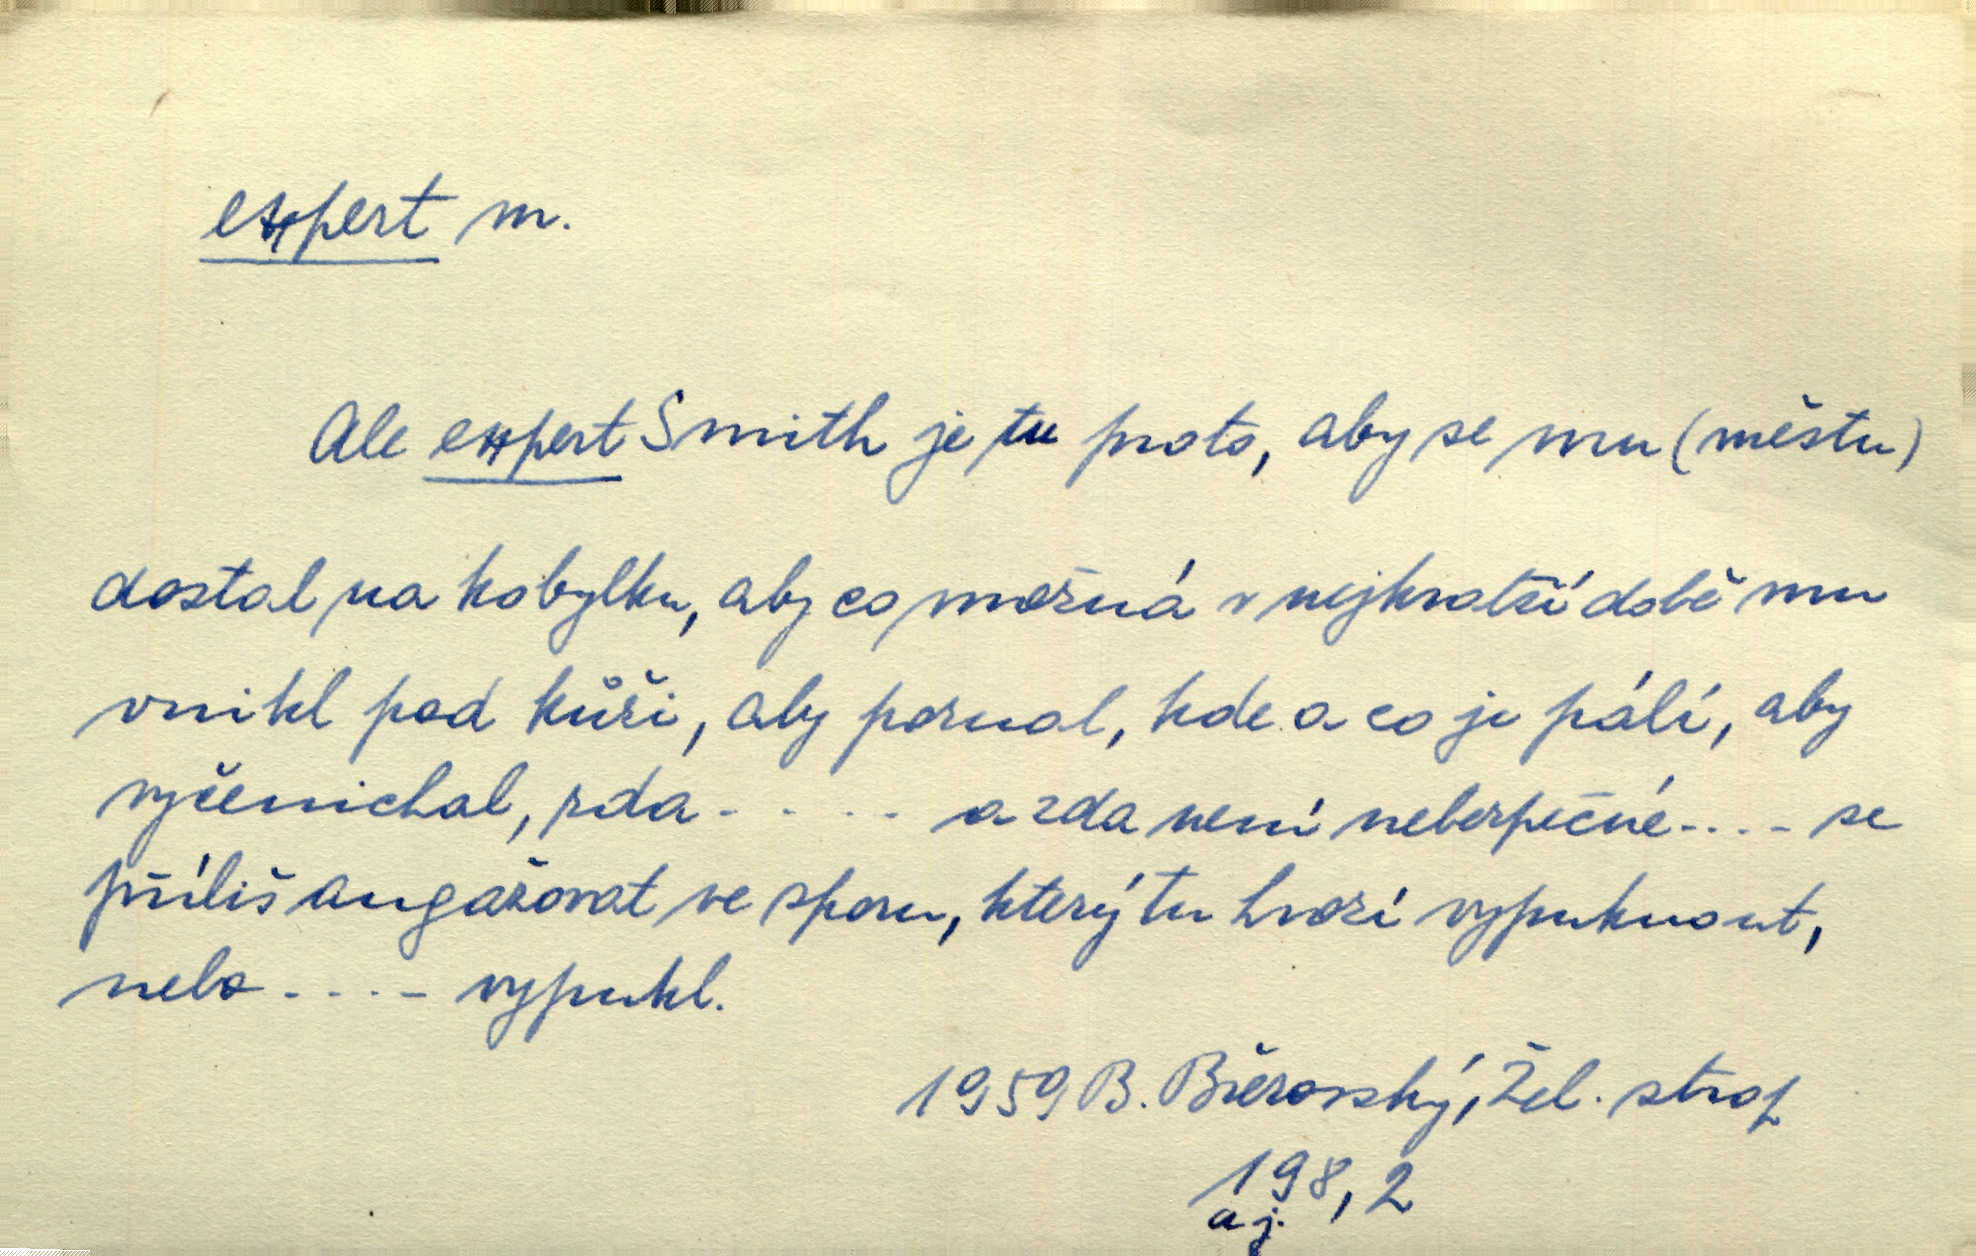 expert m.
Ale expert Smith je tu proto, aby se mu (městu)
dostal na kobylku, aby co možná v nejkratší době mu
vnikl pod kůži, aby poznal, kde a co je pálí, aby
vyčenichal, zda - - - - a zda není nebezpečné - . . - se
příliš angažovat ve sporu, který tu hrozí vypuknout,
nebo - - - - vypukl.
1959 B. Březovský, Žel. strop
198, 2
a j.